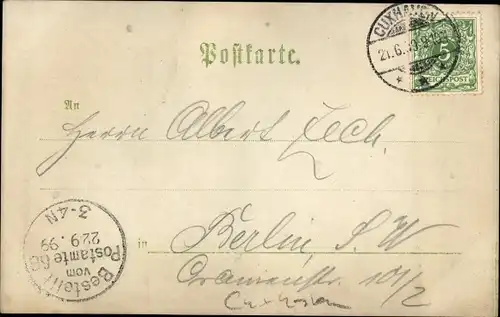 CUXHAVEN
21.6.99. 8-9N
5
REICHSPOST
Postkarte.
An
Herrn Albert Zech.
in
Berlin, S.W
Oranienstr. 101/2
Cuxhaven
Bestellt
vom
Postamte 68
22.9.99
3-4N